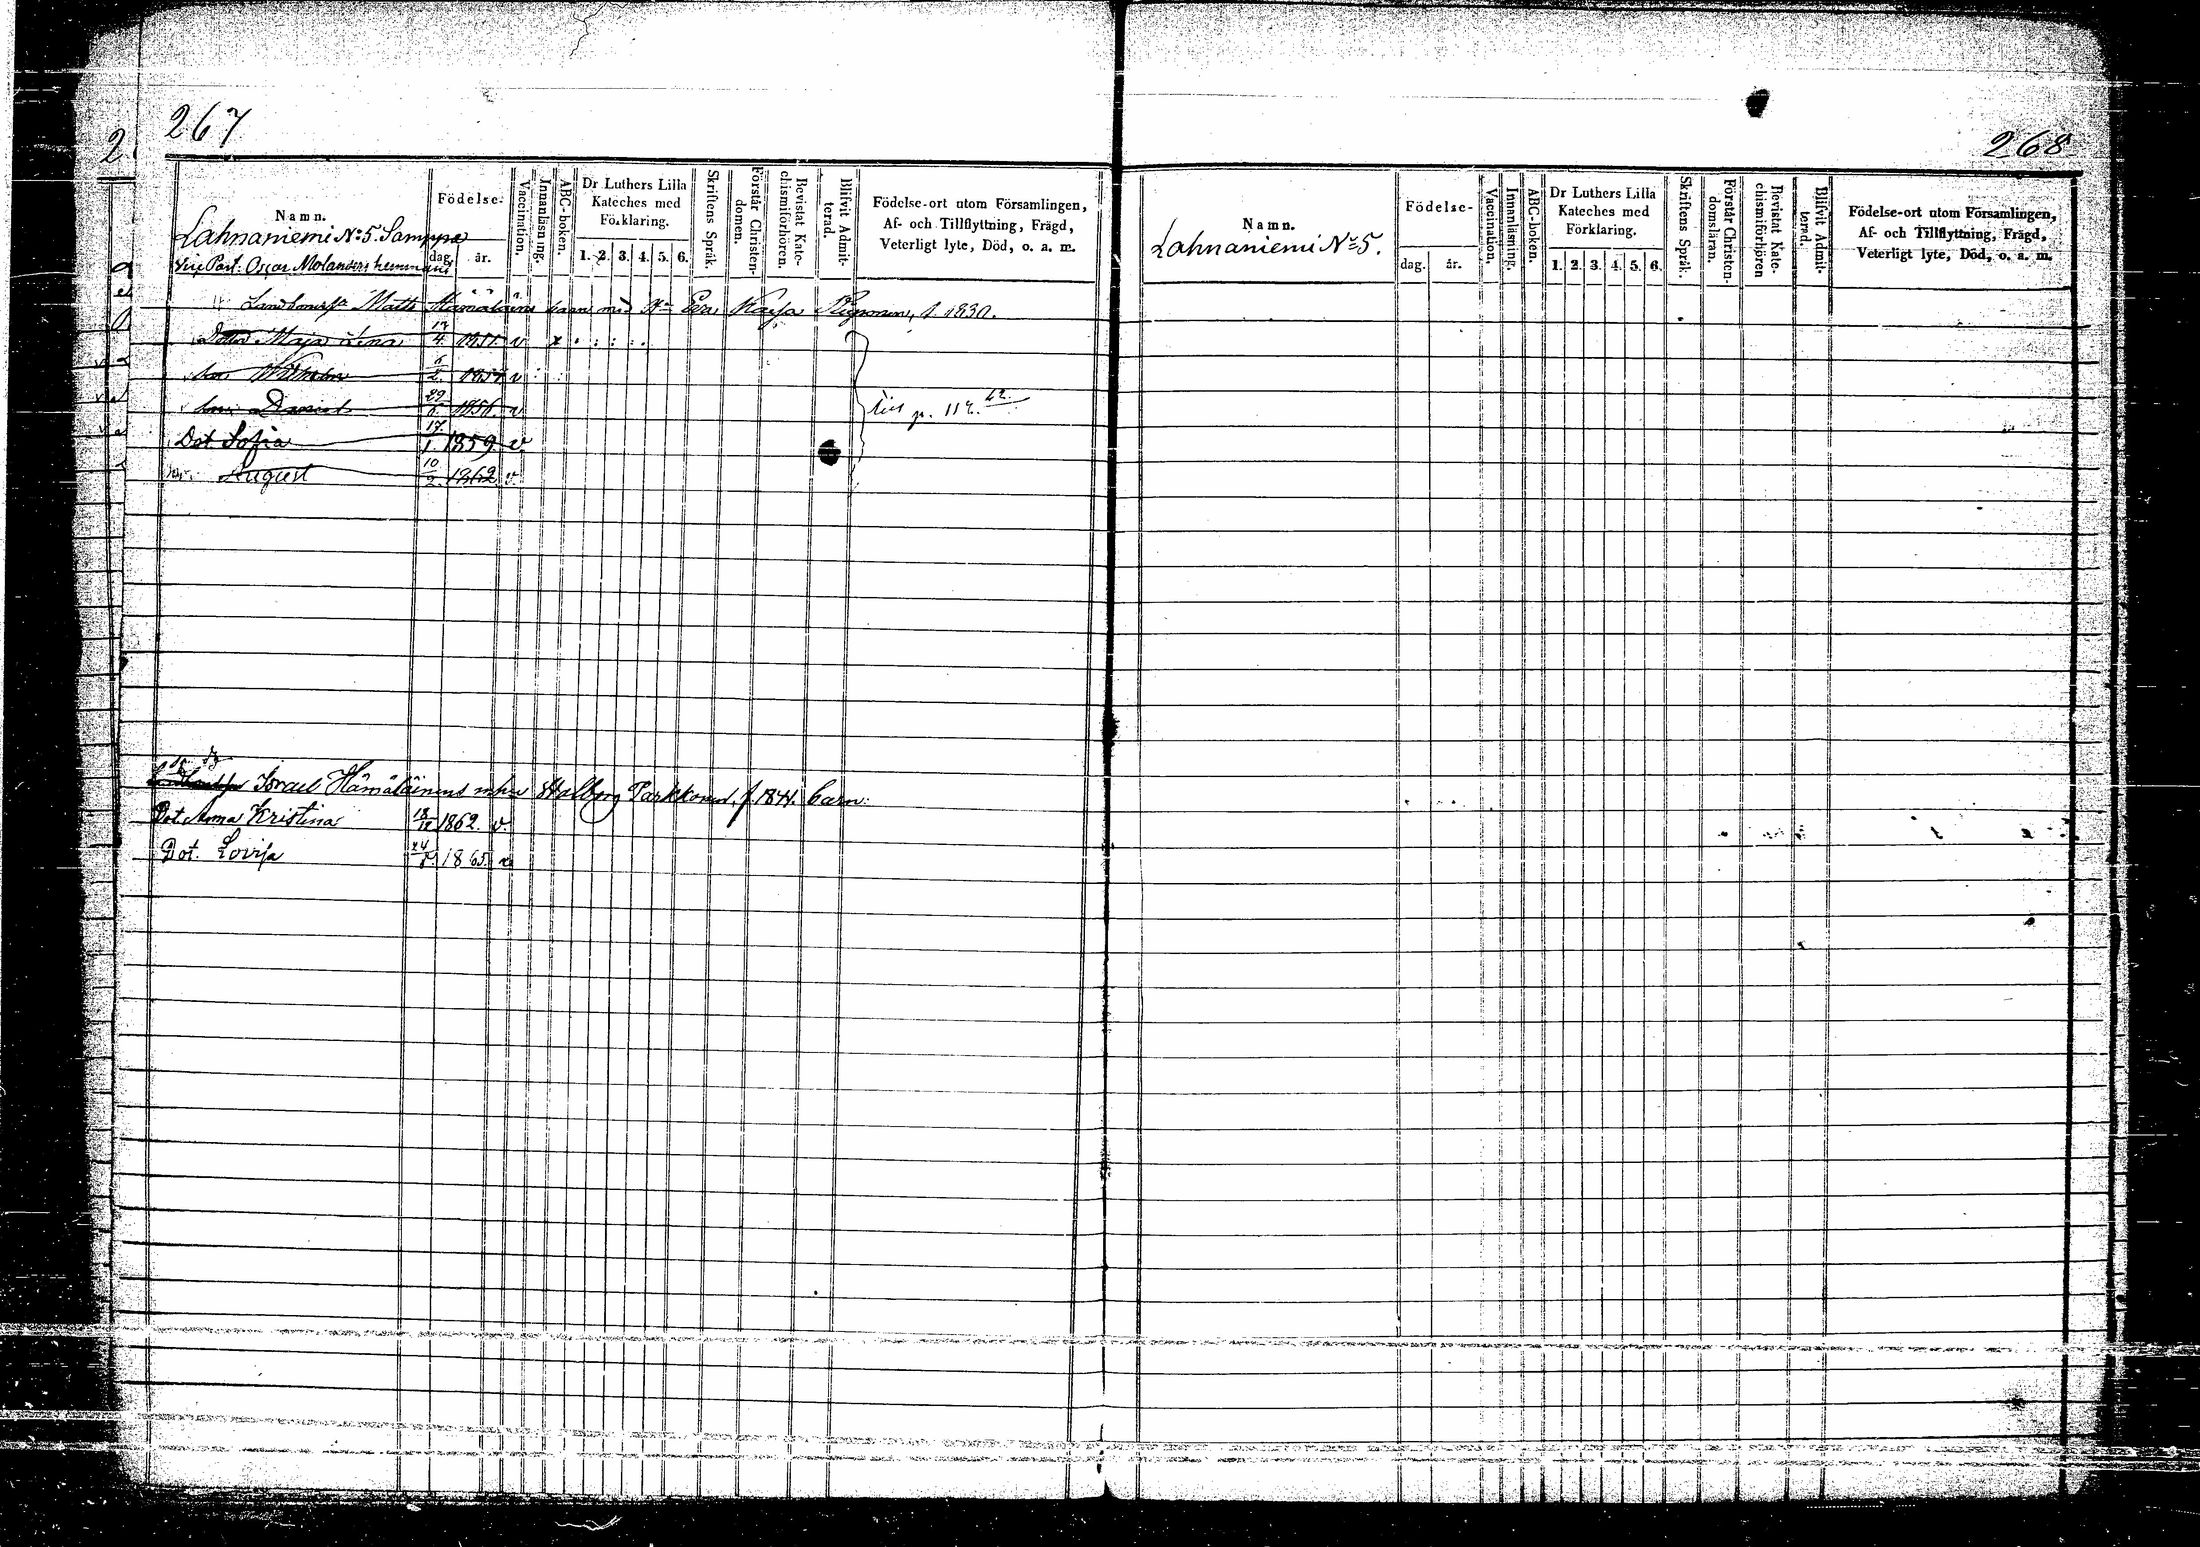 267
Namn.
Lahnaniemi No 5. Samppa
Vice Past: Oscar Molanders hemman
Födelse-
dag. år.
Vaccination.
Innanläsning.
ABC-boken.
Dr Luthers Lilla
Kateches med
Förklaring.
1. 2. 3. 4. 5. 6.
Skriftens Språk.
Förstår Christen-
domen.
Bevistat Kate-
chismiförhören.
Blifvit Admit-
terad.
Födelse-ort utom Församlingen,
Af- och Tillflyttning, Frägd,
Veterligt lyte, Död, o. a. m.
Math Hämäläins barn med Eva Kaisa f. 1830.
Maja Lena 17/4 1851. v x
Wilhelm 1854 v
Son Daniel 29/6 1856. v
p. 112.
Dot Sofia 17/1 1859. v
August 10/2 1862 v.
Israel Hämäläinens Walborg Parkkonen, f. 1841. barn:
Dot Anna Kristina 18/12 1862. v.
Dot. Lovisa 24/8 1865.
268
Namn.
Lahnaniemi No 5.
Födelse-
dag. år.
Vaccination.
Innanläsning.
ABC-boken.
Dr Luthers Lilla
Kateches med
Förklaring.
1. 2. 3. 4. 5. 6.
Skriftens Språk.
Förstår Christen-
domsläran.
Bevistat Kate-
chismiförhören
Blifvit Admit-
terad.
Födelse-ort utom Församlingen,
Af- och Tillflyttning, Frägd,
Veterligt lyte, Död, o. a. m.